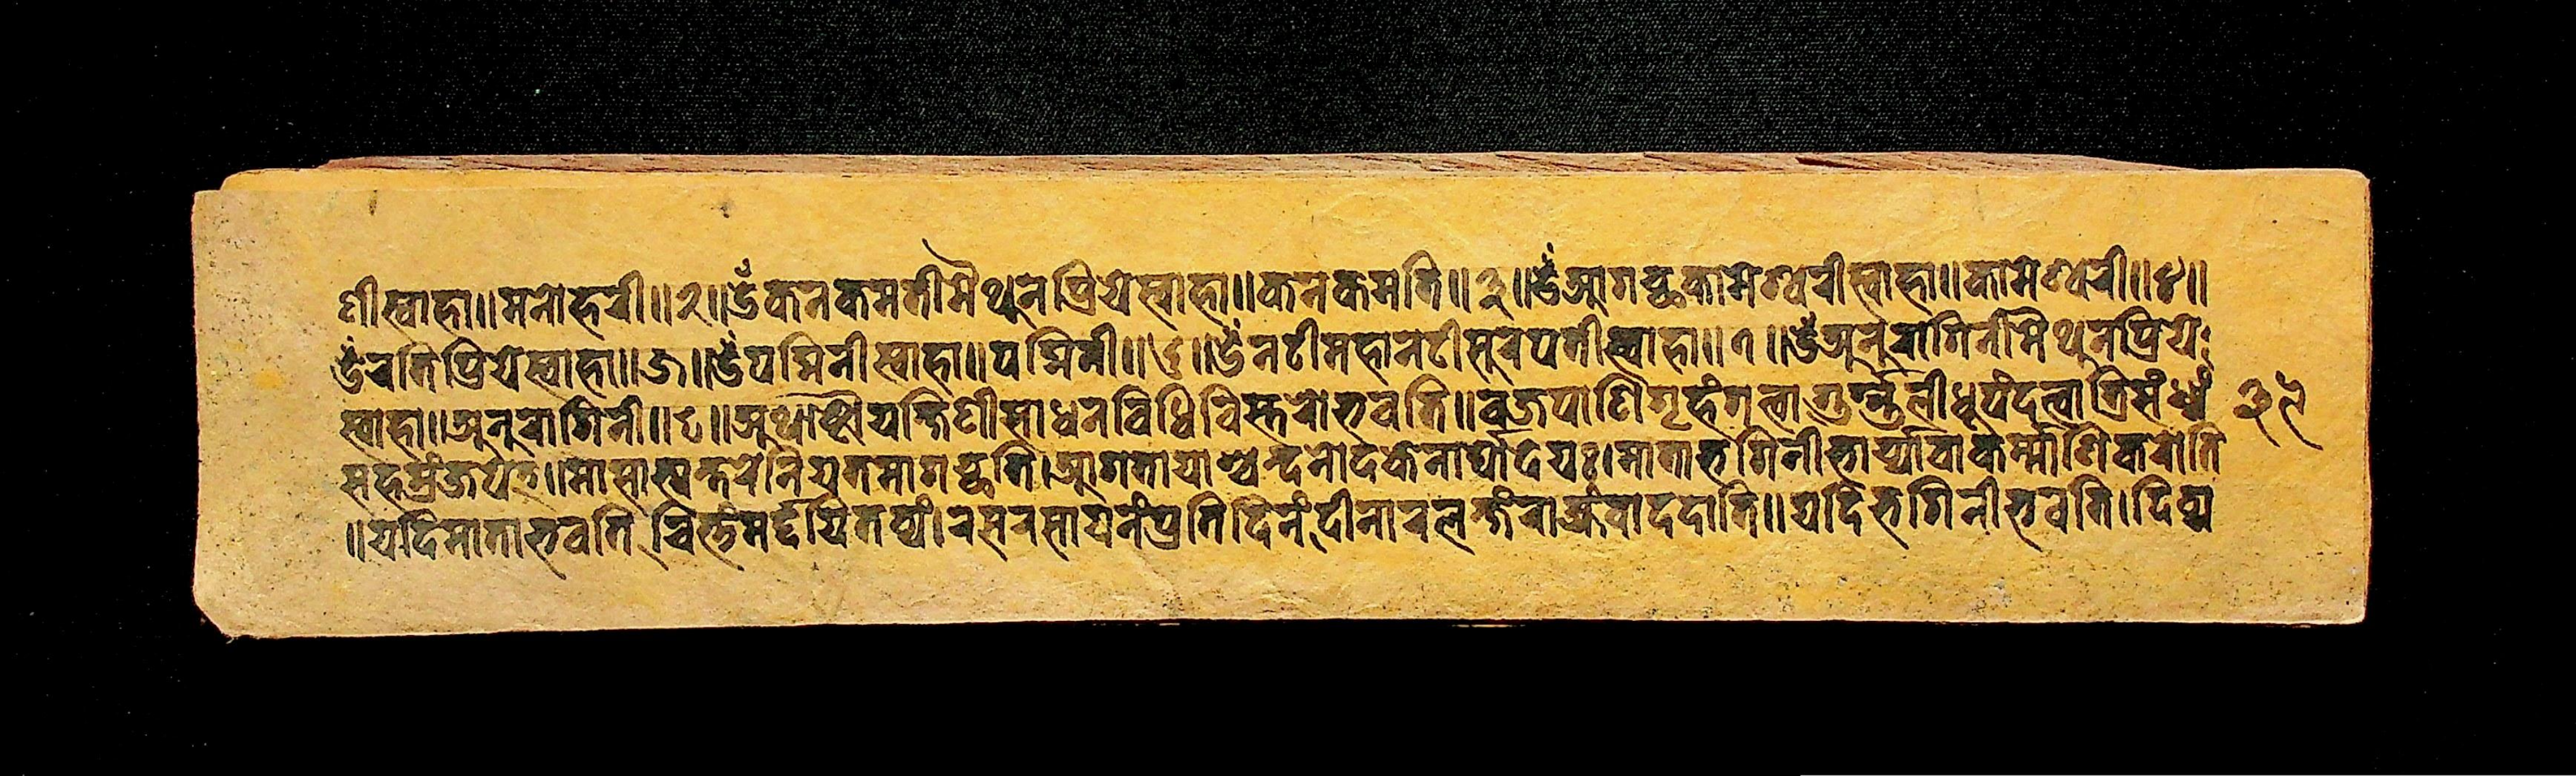 णीस्वाहा॥मनोहरी॥२॥ॐकनकमतीमैथुनप्रियेस्वाहा॥कनकमति॥३॥ॐआगच्छकामेश्वरीस्वाहा॥कामेश्वरी॥४॥
ॐरतिप्रियेस्वाहा॥५॥ॐपद्मिनीस्वाहा॥पद्मिनी॥६॥ॐनटीमहानटीसुरपतीस्वाहा॥७॥ॐअनुरागिनीमैथुनप्रिये
स्वाहा॥अनुरागिनी॥८॥अथाष्टौयक्षिणीसाधनविधिविस्तरोभवति॥वज्रपाणिगृहंगत्वागुग्गुलीधूपंदत्वात्रिसंध्यं
सहस्रंजपेत्॥मासाभ्यन्तरेनियतमागच्छति।आगतायाश्चन्दनोदकेनार्घोदेयः।माताभगिनीभार्य्यावाकर्म्माणिकरोति
॥यदिमाताभवति चित्तंमर्द्दयितव्यं।रसरसायनंप्रतिदिनंदीनारलक्षंराज्यंवाददाति॥यदिभगिनीभवति।दिव्य
३९